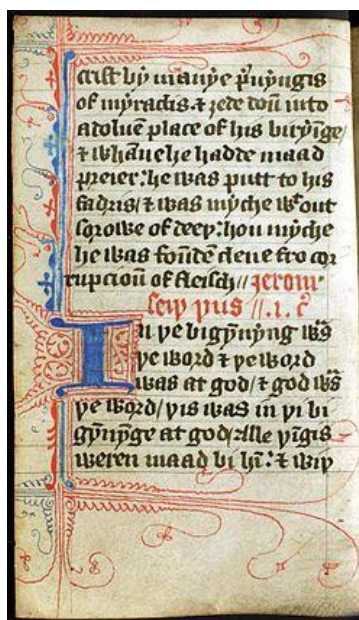 crist bi manye p'uyngis
of myraclis. & ȝede dou̅ in to
a doluen̅ place of his biryinge/
& whanne he hadde maad
preier: he was putt to his
fadris/ & was myche wt out
sorowe of deeþ: hou myche
he was founde̅ clene fro cor
rupcioun̅ of fleisch // Jerom
seiþ þus //. 1. c̅
In þe bigyn̅nyng was
þe word & þe word
was at god/ & god was
þe word/ þis was in þe bi
gyn̅ynge at god/ alle þingis
weren maad bi hi̅: & wiþ